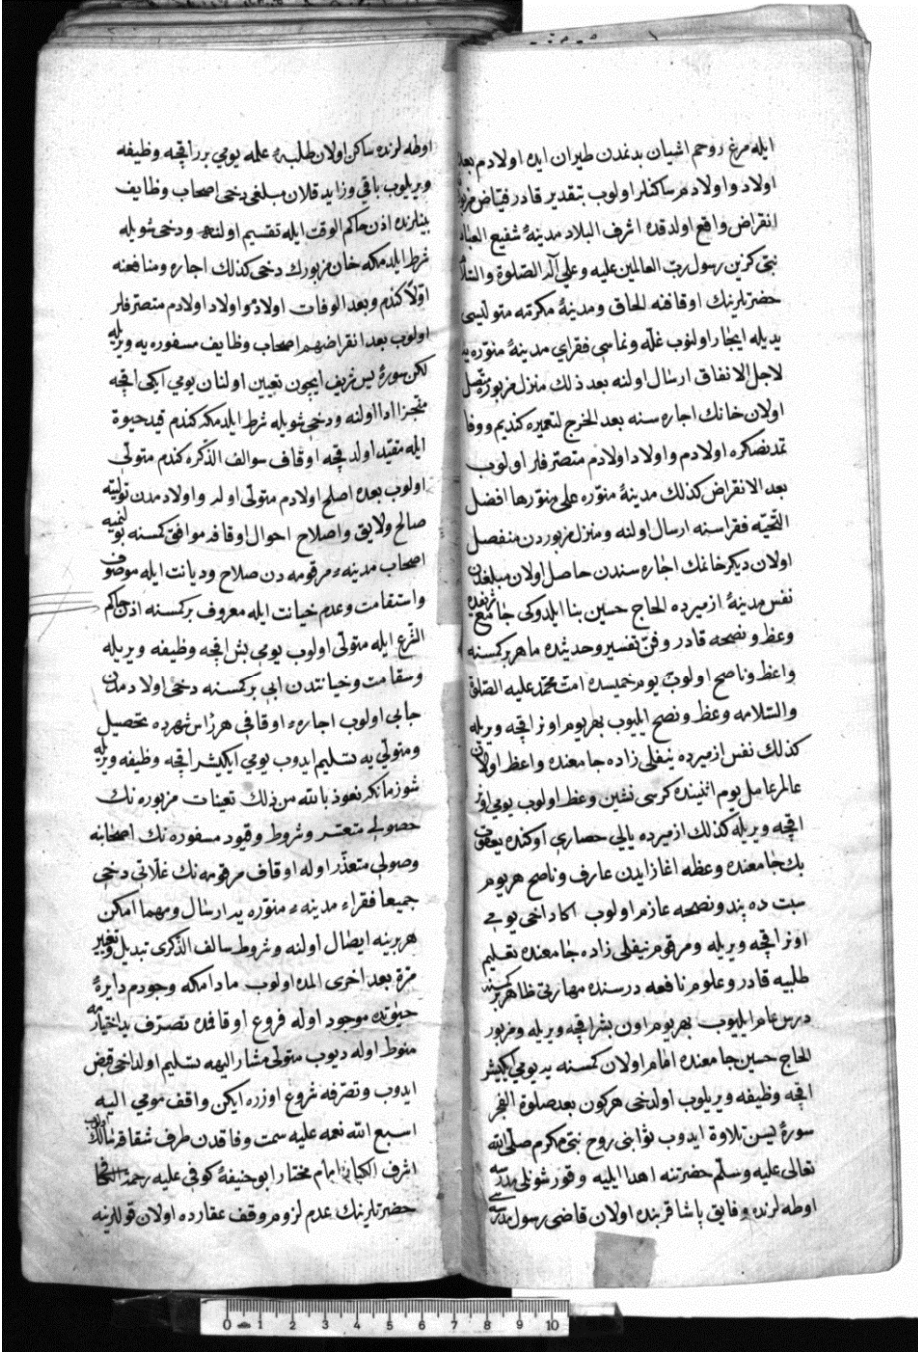 ايله مرغ روحم اشيان بدنمدن طيران ايده اولادم بعده
اولاد و اولادم ساكنلر اولوب بتقدير قادر فياض مزبور
انقراض واقع اولدقده اشرف البلاد مدينهٔ شفيع العباد
نبى كزين رسول رب العالمين عليه و على آله الصلوة والسلام
حضرتلرينك اوقافنه الحاق و مدينهٔ مكرمه متوليسى
يديله ايجار اولنوب غله و نماسى فقراى مدينهٔ منوره يه
لاجل الانفاق ارسال اولنه بعد ذلك منزل مزبوره متصل
اولان خانك اجاره سنه بعد الخرج لتعميره كنديم و وفا
تمدنصكره اولادم و اولاد اولادم متصرفلر اولوب
بعد الانقراض كذلك مدينهٔ منوره على منورها افضل
التحيه فقراسنه ارسال اولنه و منزل مزبوردن منفصل
اولان ديكر خانك اجاره سندن حاصل اولان مبلغدن
نفس مدينهٔ ازميرده الحاج حسين بنا ايلدوكى جامع شريفده
وعظ و نصحه قادر و فن تفسير و حديثده ماهر بر كمسنه
واعظ و ناصح اولوب يوم خميسده امت محمد عليه الصلوة
والسلامه وعظ و نصح ايليوب بهر يوم اوز اقچه ويريله
كذلك نفس ازميرده ينفلى زاده جامعنده واعظ اولان
عالم عامل يوم اثنينده كرسى نشين وعظ اولوب يومى اون
اقچه ويريله كذلك ازميرده يالى حصارى اوكنده يعقوب
بك جامعنده وعظه اغاز ايدن عارف و ناصح هر يوم
سبت ده پند و نصحه عازم اولوب اكا داخى يومى
اون اقچه ويريله و مرقوم ينفلى زاده جامعنده تعليم
طلبيه قادر و علوم نافعه درسنده مهارتى ظاهر بر كمسنه
درس عام ايليوب بهر يوم اون بشر اقچه ويريله و مزبور
الحاج حسين جامعنده امام اولان كمسنه يه يومى ايكيشر
اقچه وظيفه ويريلوب اولداخى هر كون بعد صلوة الفجر
سورهٔ يس تلاوة ايدوب ثوابنى روح نبى مكرم صلى الله
تعالى عليه و سلم حضرتنه اهدا ايليه و قور شونلى مدرسه
اوطه لرنده و فايق پاشا قربنده اولان قاضى رسول مدرسه سى
اوطه لرنده ساكن اولان طلبهٔ علمه يومى برر اقچه وظيفه
ويريلوب باقى و زايد قلان مبلغى دخى اصحاب وظايف
بينلرنده اذن حاكم الوقت ايله تقسيم اولنه و دخى شويله
شرط ايلدمكه خان مزبورك دخى كذلك اجاره و منافعنه
اولا كندم و بعد الوفات اولادم و اولاد اولادم متصرفلر
اولوب بعد انقراضهم اصحاب وظايف مسفوره يه ويريله
لكن سورهٔ يس شريف ايچون تعيين اولنان يومى ايكى اقچه
منجزا ادا اولنه و دخى شويله شرط ايلدمكه كندم قيد حيوة
ايله مقيد اولدقجه اوقاف سوالف الذكره كندم متولى
اولوب بعده اصلح اولادم متولى اولر و اولادمدن توليته
صالح و لايق و اصلاح احوال اوقافه موافق كمسنه بولنميه
اصحاب مدينهٔ مرقومه دن صلاح و ديانت ايله موصوف
و استقامت و عدم خيانت ايله معروف بر كمسنه اذن حاكم
الشرع ايله متولى اولوب يومى بش اقچه وظيفه ويريله
و سقامت و خيانتدن ابى بر كمسنه دخى اولادمدن
جابى اولوب اجارهٔ اوقافى هر راس شهرده تحصيل
و متولى يه تسليم ايدوب يومى ايكيشر اقچه وظيفه ويريله
شول زمانكه نعوذ بالله من ذلك تعينات مزبوره نك
حصولى متعسر و شروط و قيود مسفوره نك اصحابنه
وصولى متعذر اوله اوقاف مرقومه نك غلاتى دخى
جميعا فقراء مدينهٔ منوره يه ارسال و مهما امكن
هر برينه ايصال اولنه و شروط سالف الذكرى تبديل و تغيير
مرة بعد اخرى المده اولوب مادامكه وجودم دايرهٔ
حيوتده موجود اوله فروع اوقافده تصرف يد اختيارمه
منوط اوله ديوب متولى مشار اليهه تسليم اولداخى قبض
ايدوب و تصرفه شروع اوزره ايكن واقف مومى اليه
اسبع الله نعمه عليه سمت وفاقدن طرف شقاقه سالك اولوب
اشرف امام مختار ابو حنيفهٔ كوفى عليه رحمة
حضرتلرينك عدم لزوم وقف عقارده اولان قوللرينه